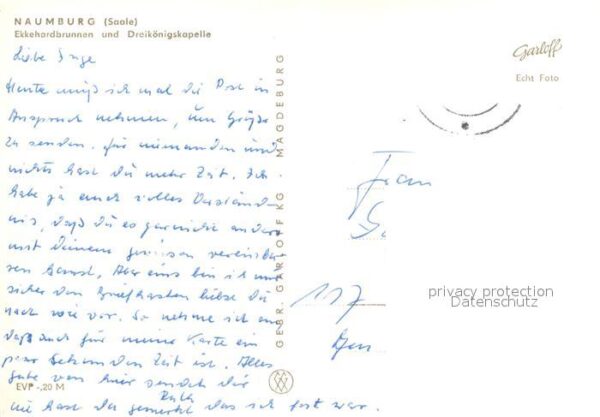 NAUMBURG (Saale)
Ekkehardbrunnen und Dreikönigskapelle
Liebe Inge
Heute muß ich mal die Post in
Anspruch nehmen, um Grüße
zu senden. für niemanden und
nichts hast du mehr Zeit. Ich
habe ja auch volles Verständ-
nis, daß du es garnicht anders
mit deinem gewissen vereinba-
ren kannst. Aber eins bin ich mir
sicher den Briefkasten liebst du
nach wie vor. So nehme ich an
daß auch für meine Karte ein
paar Sekunden Zeit ist. Alles
gute von hier sendet dir
Ruth
hast du gemerkt das ich fort war.
EVP -,20 M
GEBR. GARLOFF KG MAGDEBURG
Garloff
Echt Foto
Frau
117
privacy protection
Datenschutz